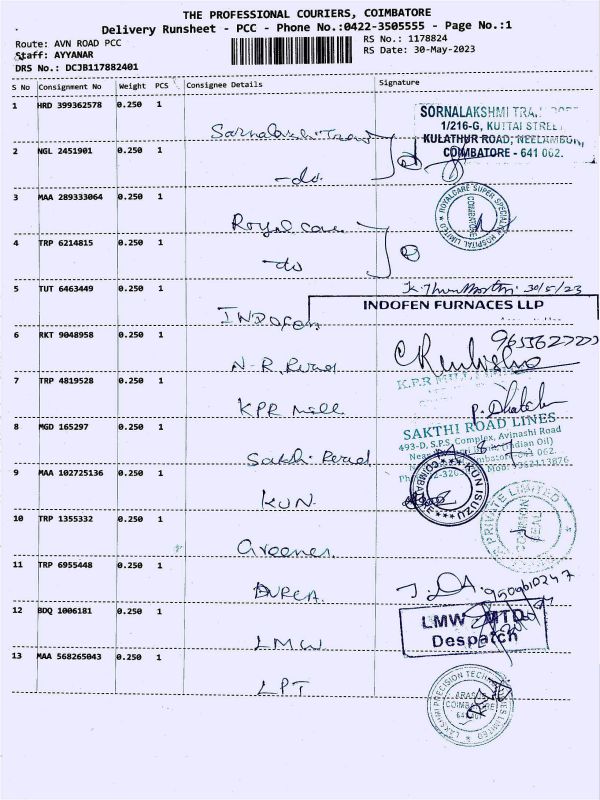 THE PROFESSIONAL COURIERS, COIMBATORE
Delivery Runsheet - PCC - Phone No.:0422-3505555 - Page No.:1
Route: AVN ROAD PCC
RS No.: 1178824
Staff: AYYANAR
RS Date: 30-May-2023
DRS No.: DCJB117882401
S No Consignment No Weight PCS Consignee Details Signature
1 HRD 399362578 0.250 1
Sornalakshi Trans
SORNALAKSHMI
1/216-G, KUTTAI STREET
KULATHUR ROAD, NEELAMBUR,
COIMBATORE - 641 062.
2 NGL 2451901 0.250 1
-do
3 MAA 289333064 0.250 1
Royal care
ROYALCARE SUPER SPECIALITY HOSPITAL LIMITED
COIMBATORE
4 TRP 6214815 0.250 1
-do
5 TUT 6463449 0.250 1
30/5/23
INDOFEN
INDOFEN FURNACES LLP
6 RKT 9048958 0.250 1
N.R.
K.P.R MILL
7 TRP 4819528 0.250 1
KPR mill
8 MGD 165297 0.250 1
Sakthi
SAKTHI ROAD LINES
493-D, S.P.S. Complex, Avinashi Road
(Indian Oil)
641 062.
9 MAA 102725136 0.250 1
KUN
KUN ISUZU
COIMBATORE
10 TRP 1355332 0.250 1
Greener
PRIVATE LIMITED
COMMON SEAL
11 TRP 6955448 0.250 1
12 BDQ 1006181 0.250 1
LMW
LMW MTD
Despatch
13 MAA 568265043 0.250 1
LPT
LAKSHMI PRECISION TECHNOLOGIES LIMITED
COIMBATORE